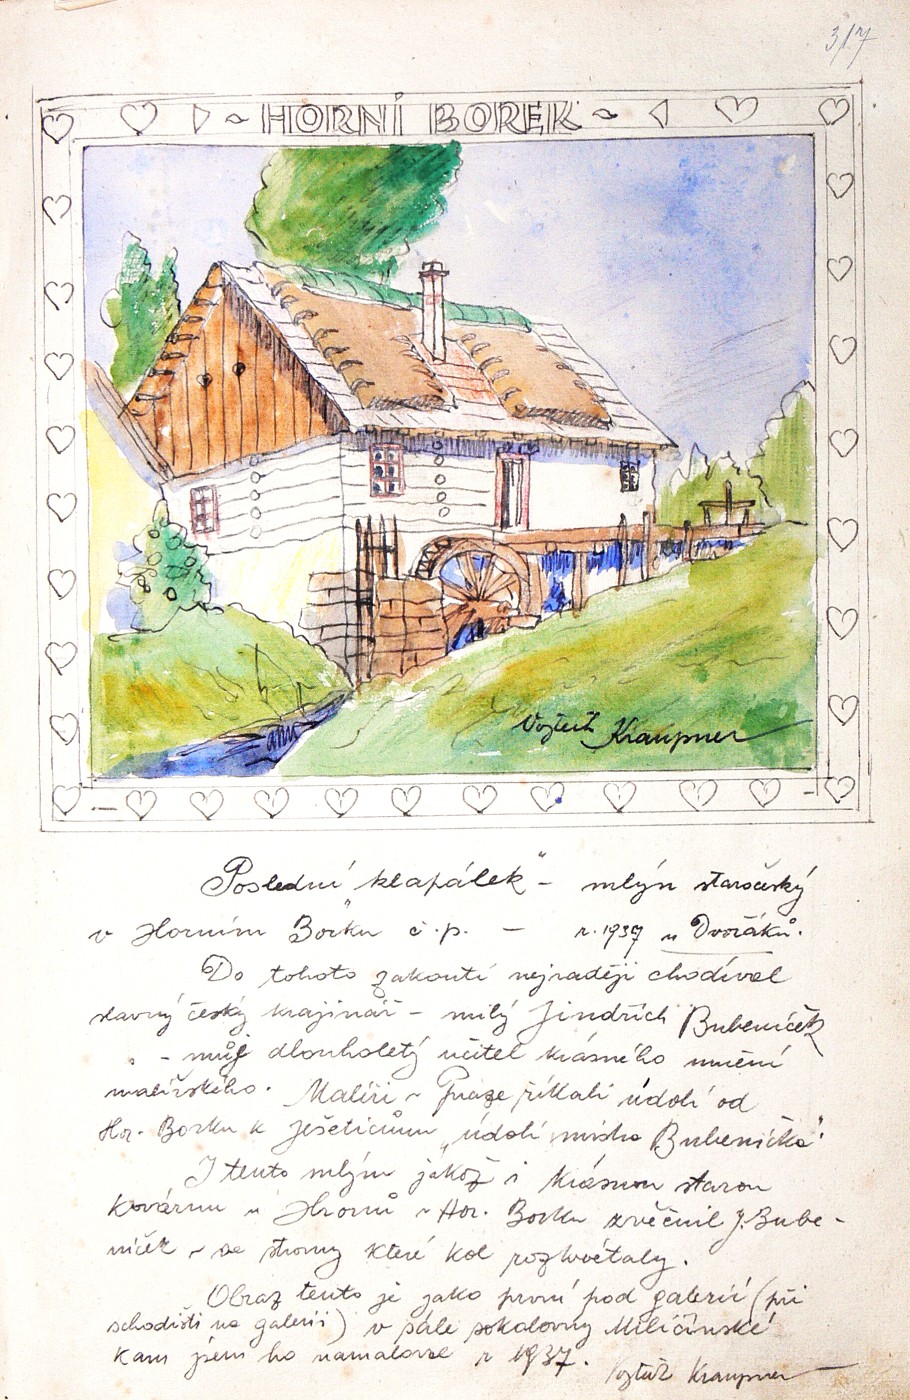 3/7
HORNÍ BOREK
Vojtěch Kraupner
Poslední "klapálek" - mlýn staročeský
v Horním Borku č.p. - r. 1937 u Dvořáků.
Do tohoto zákoutí nejraději chodíval
slavný český krajinář - milý Jindřich Bubeníček
- můj dlouholetý učitel krásného umění
malířského. Malíři v Praze říkali údolí od
Hor. Borku k Ješeticům "údolí mistra Bubeníčka".
I tento mlýn jakož i krásnou starou
kovárnu u Hromů v Hor. Borku zvěčnil J. Bube-
níček se stromy které kol rozkvétaly.
Obraz tento je jako první pod galerií (při
schodišti na galerii) v sále sokolovny Miličínské
kam jsem ho namaloval r 1937. Vojtěch Kraupner